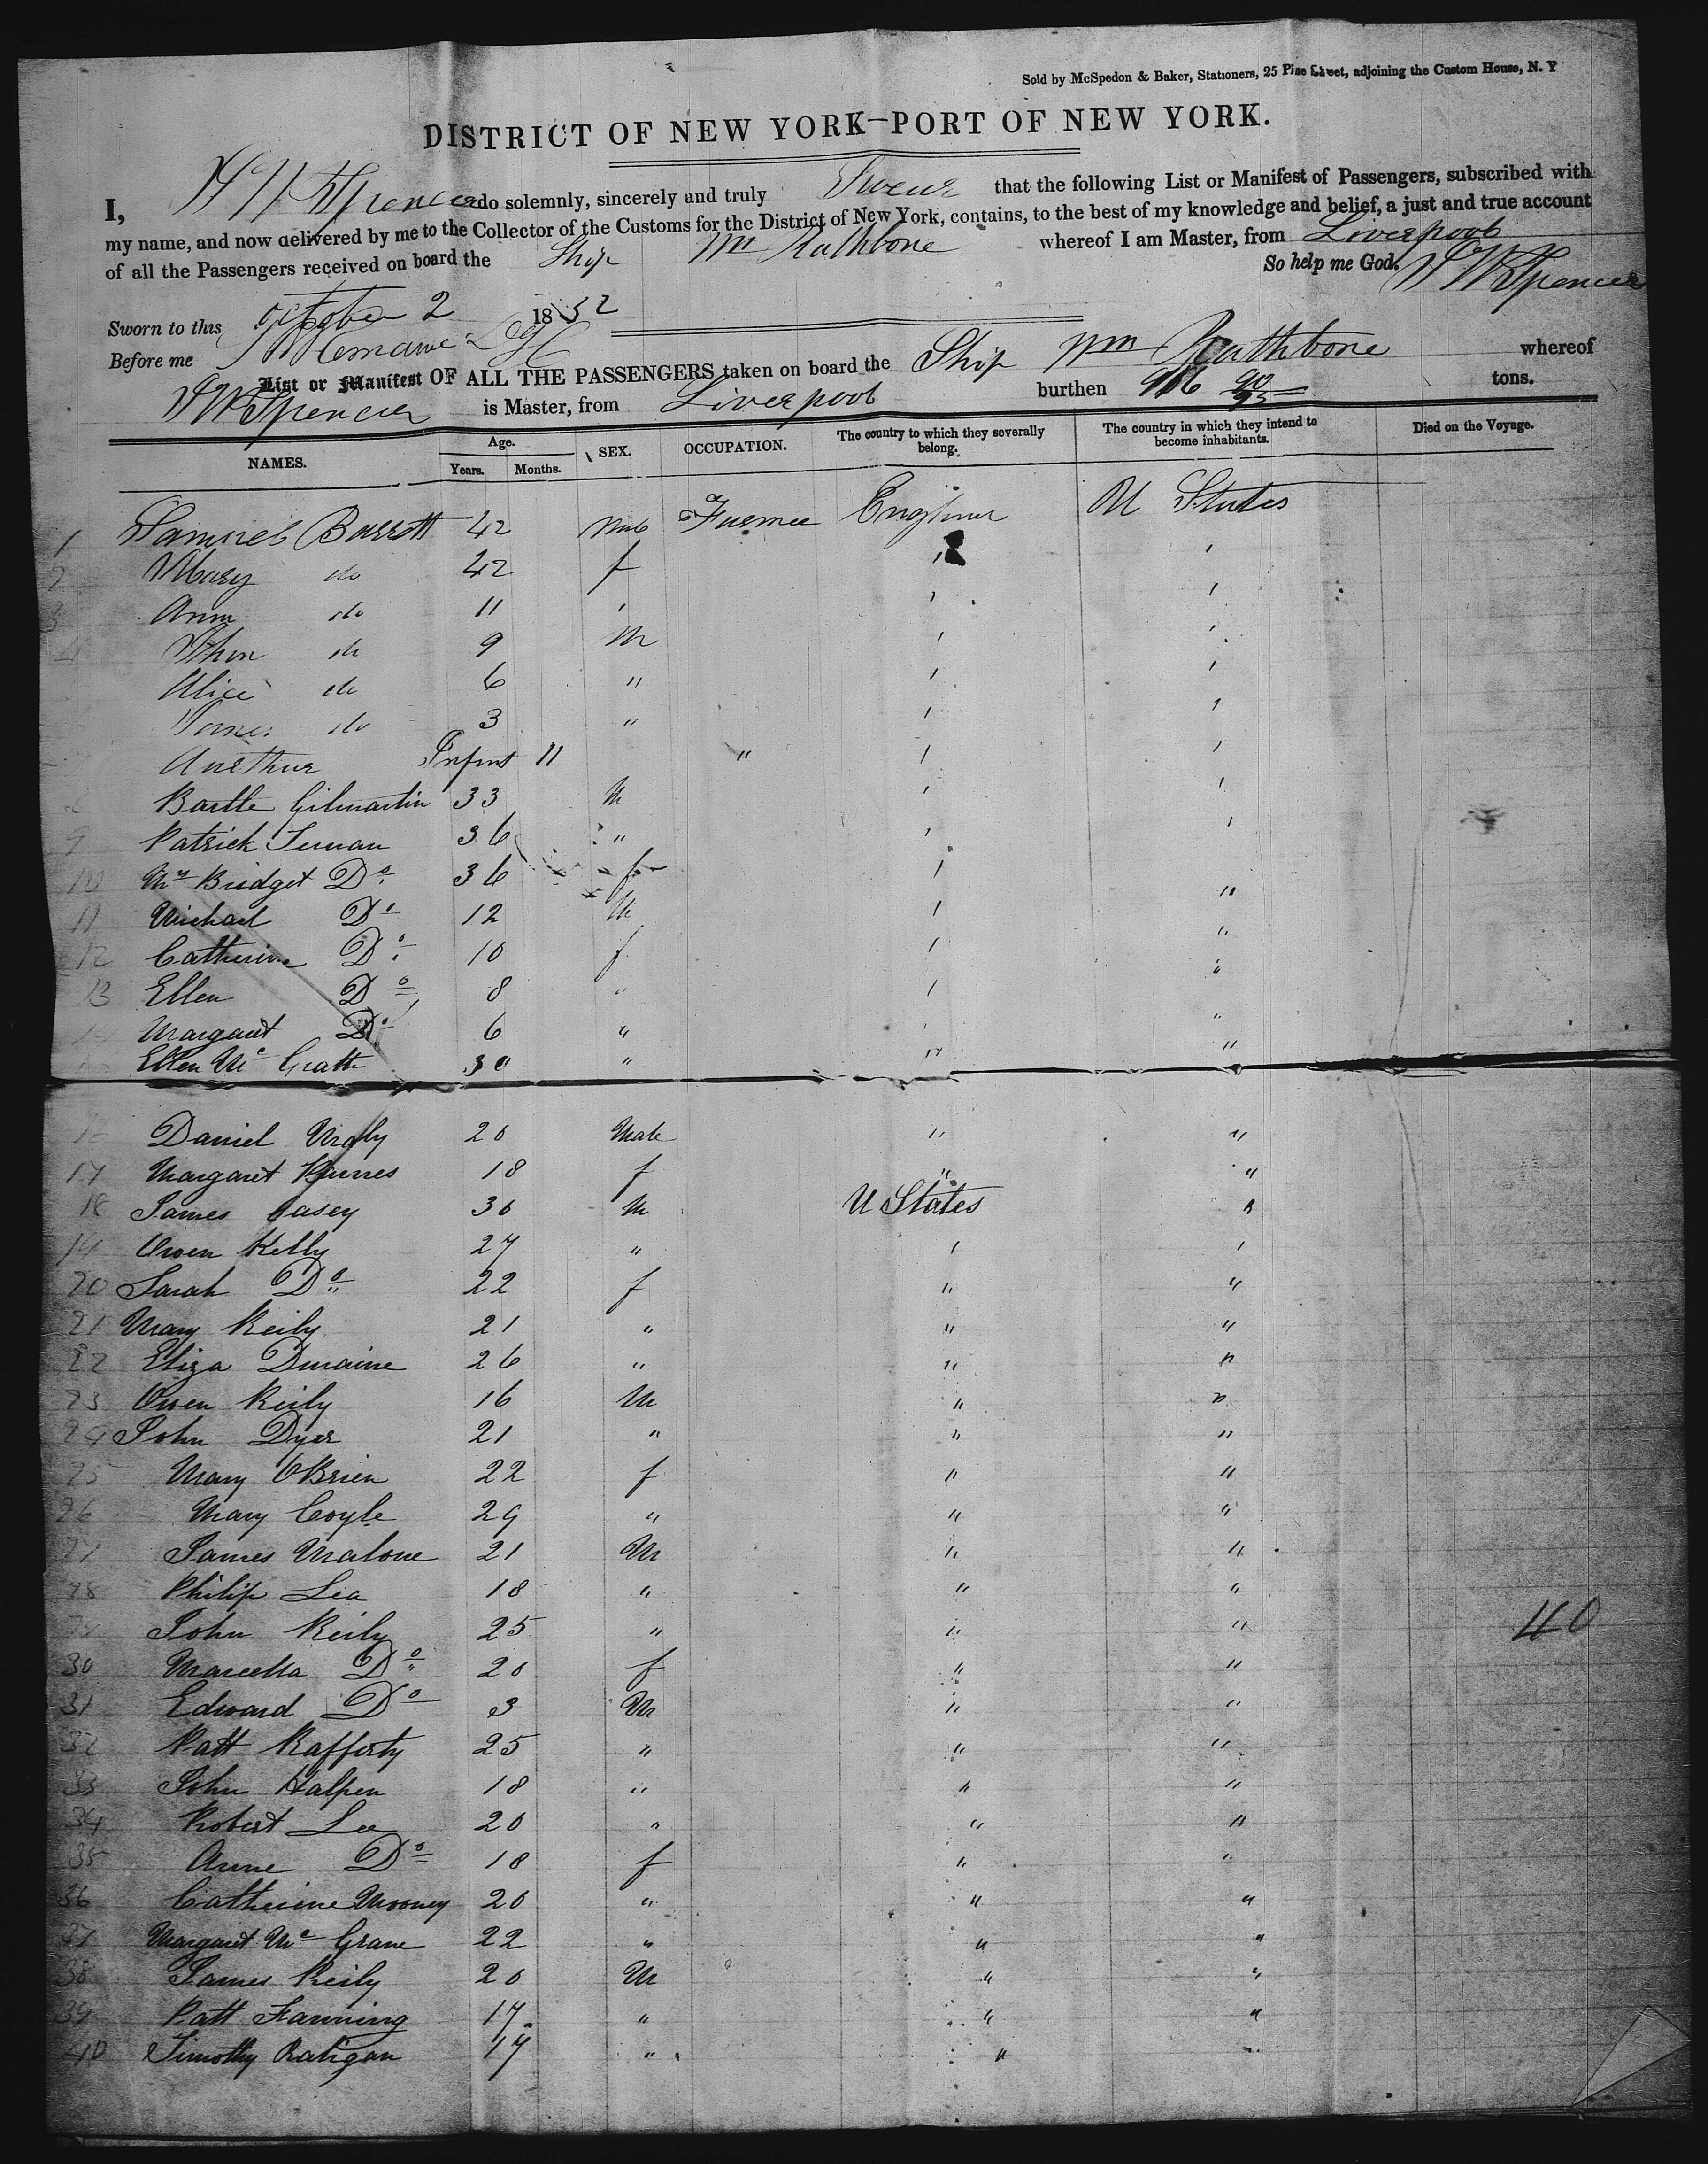 Sold by McSpedon & Baker, Stationers, 25 Pine Street, adjoining the Custom House, N. Y
DISTRICT OF NEW YORK—PORT OF NEW YORK.
I, Spencer do solemnly, sincerely and truly Swear that the following List or Manifest of Passengers, subscribed with
my name, and now delivered by me to the Collector of the Customs for the District of New York, contains, to the best of my knowledge and belief, a just and true account
of all the Passengers received on board the Ship Wm Rathbone whereof I am Master, from Liverpool
So help me God. Spencer
Sworn to this October 2 1852
Before me
List or Manifest OF ALL THE PASSENGERS taken on board the Ship Wm Rathbone whereof
Spencer is Master, from Liverpool burthen 916 90/95 tons.
NAMES. Age. Years. Months. SEX. OCCUPATION. The country to which they severally belong. The country in which they intend to become inhabitants. Died on the Voyage.
1 Samuel Barrott 42 Male Farmer England U States
2 Mary do 42 f " "
3 Ann do 11 " " "
4 John do 9 M " "
Alice do 6 " " "
James do 3 " " "
Infant 11 " " "
Bartle Gilmartin 33 M " "
9 Patrick 36 " " "
10 Mrs Bridget Do 36 f " "
11 Michael Do 12 M " "
12 Catherine Do 10 f " "
13 Ellen Do 8 " " "
14 Margaret Do 6 " " "
Ellen Mc Grath 30 " " "
16 Daniel 20 Male " "
17 Margaret 18 f " "
18 James Casey 30 M U States "
19 Owen Kelly 27 " " "
20 Sarah Do 22 f " "
21 Mary Reily 21 " " "
22 Eliza 26 " " "
23 Owen Reily 16 M " "
24 John Dyer 21 " " "
25 Mary OBrien 22 f " "
26 Mary Coyle 29 " " "
27 James Malone 21 M " "
28 Philip Lea 18 " " "
29 John Reily 25 " " "
30 Marcella Do 20 f " "
31 Edward Do 3 M " "
32 Patt Rafferty 25 " " "
33 John Halpen 18 " " "
34 Robert Lee 20 " " "
35 Anne Do 18 f " "
36 Catherine Mooney 20 " " "
37 Margaret Mc Grane 22 " " "
38 James Reily 20 M " "
39 Patt Fanning 17 " " "
40 Timothy Ratigan 17 " " "
40